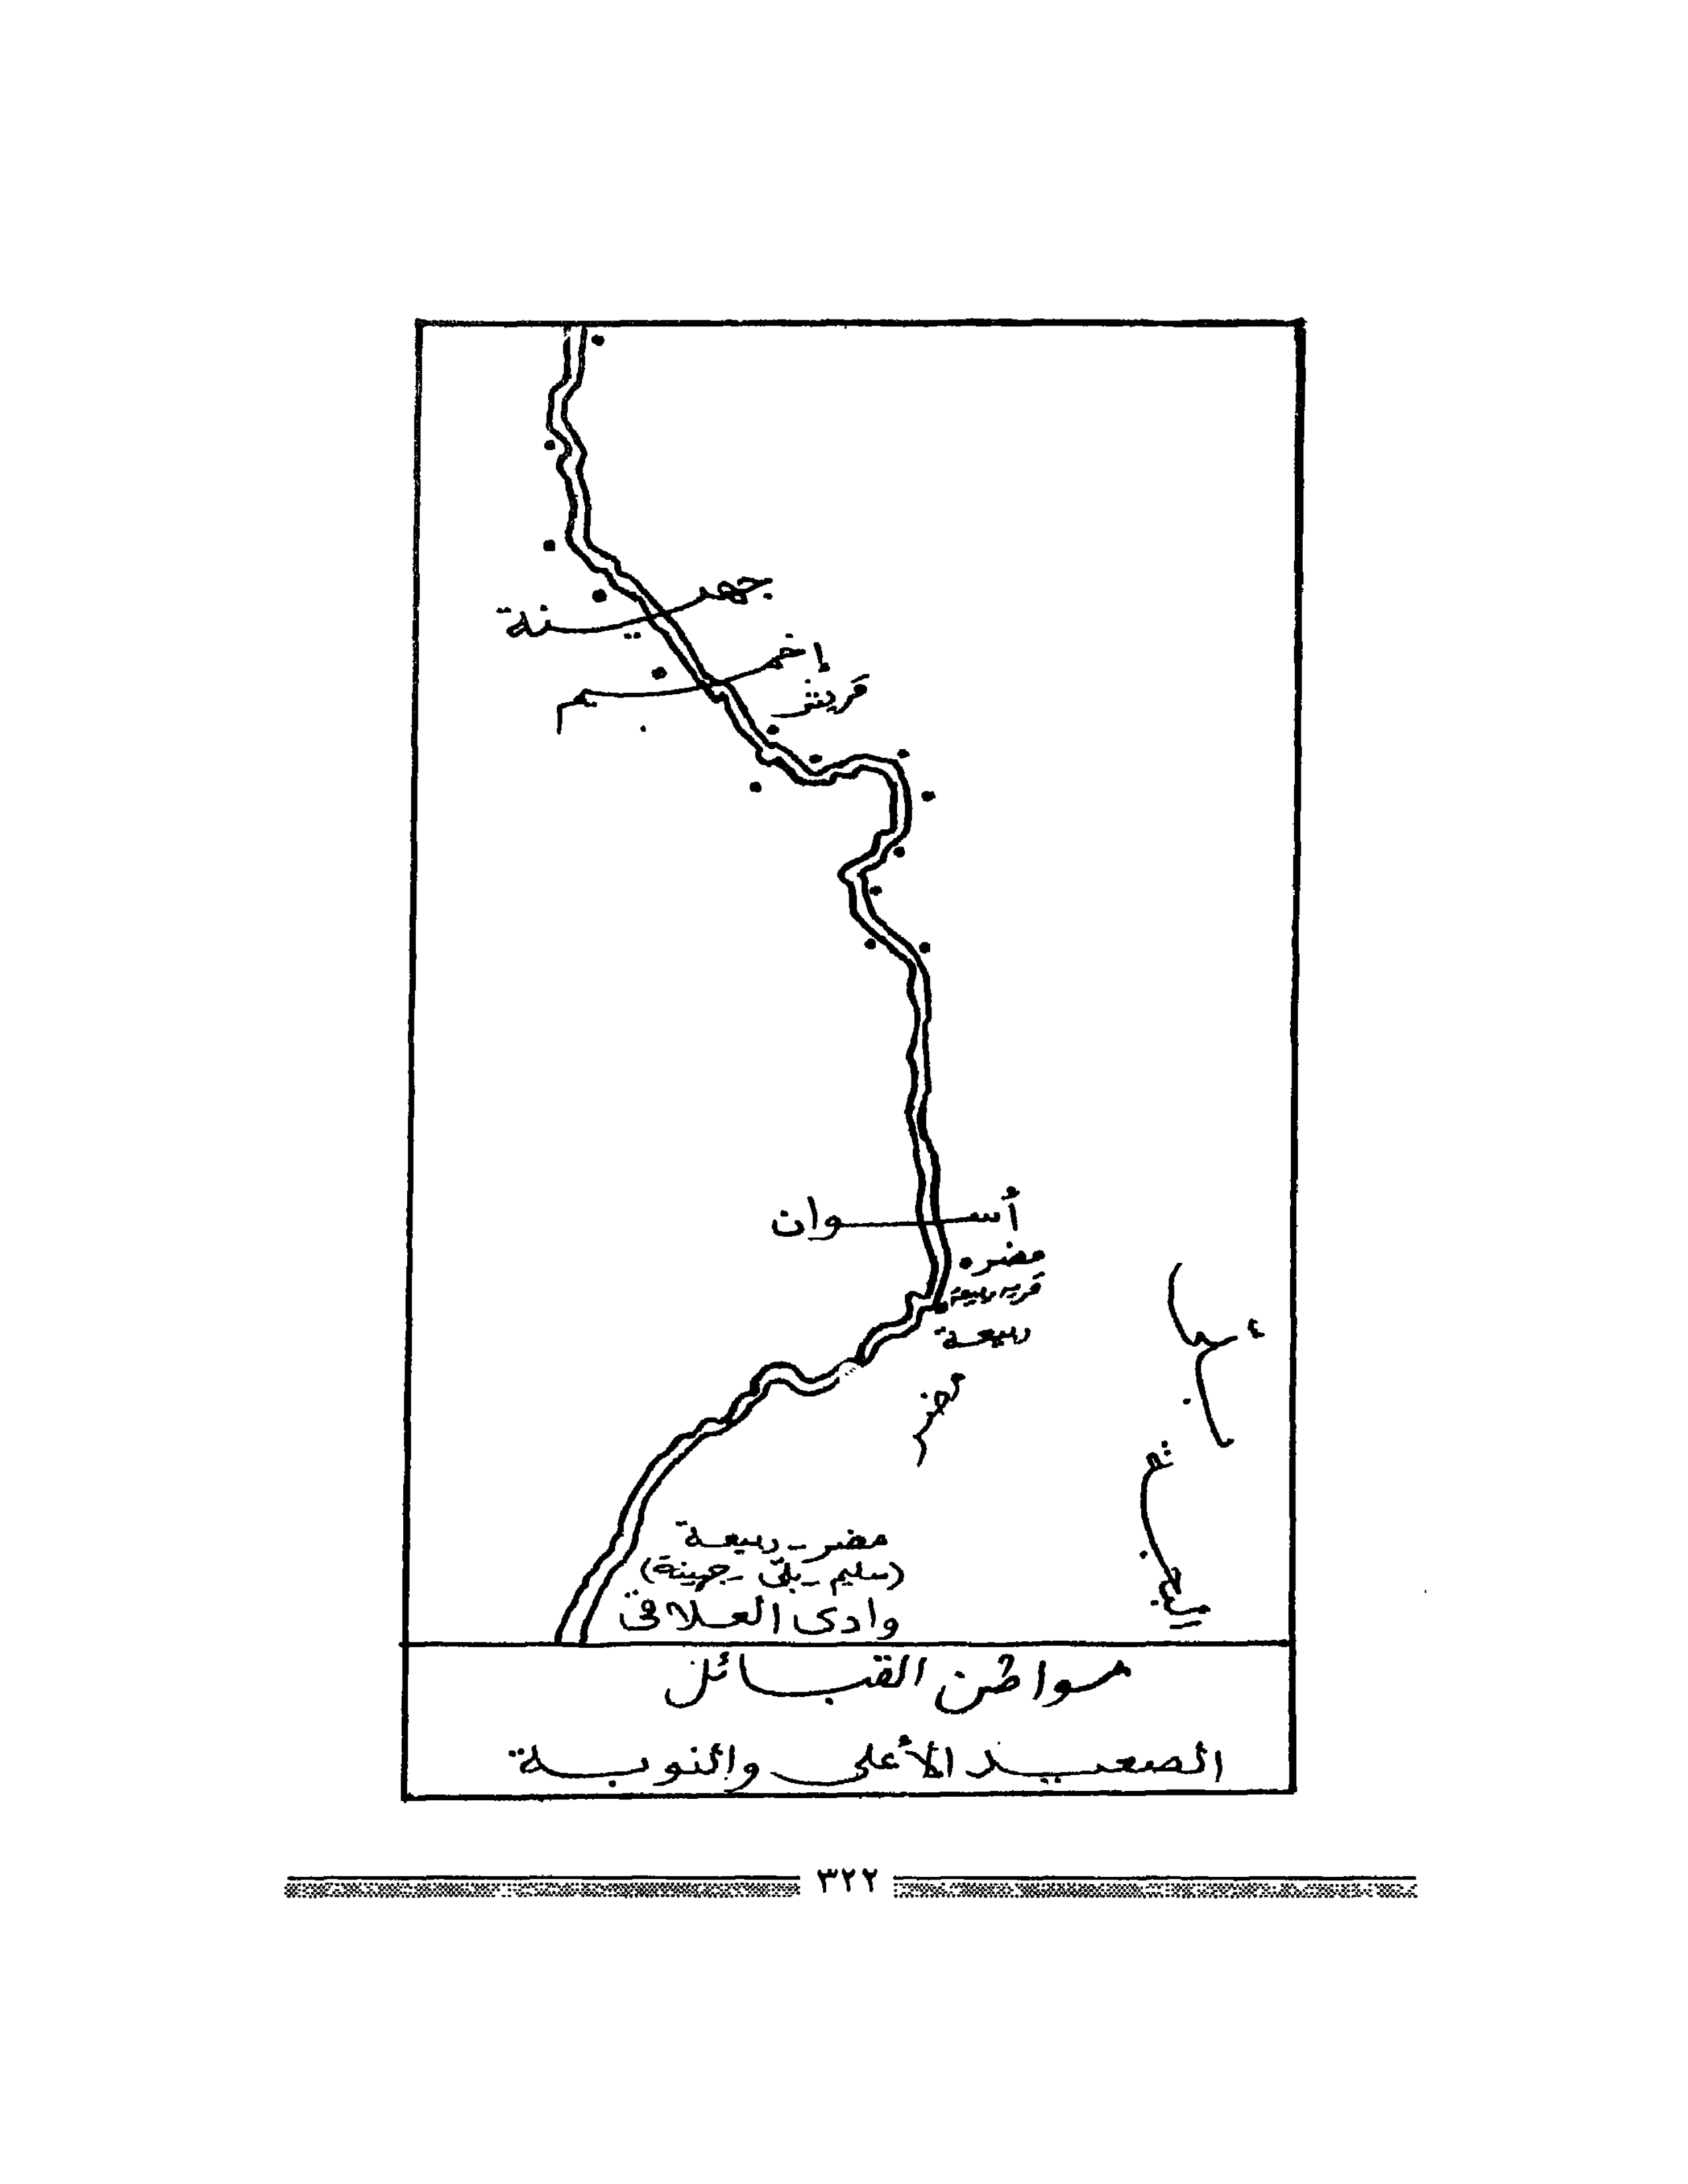 جهينة
إخميم
قريش
أسوان
مضر
قرية ربيعة
ربيعة
مضر
مضر - ربيعة
(سليم - بلى - جهينة)
وادى العلاقى
مواطن القبائل
الصعيد الأعلى والنوبة
٣٢٢